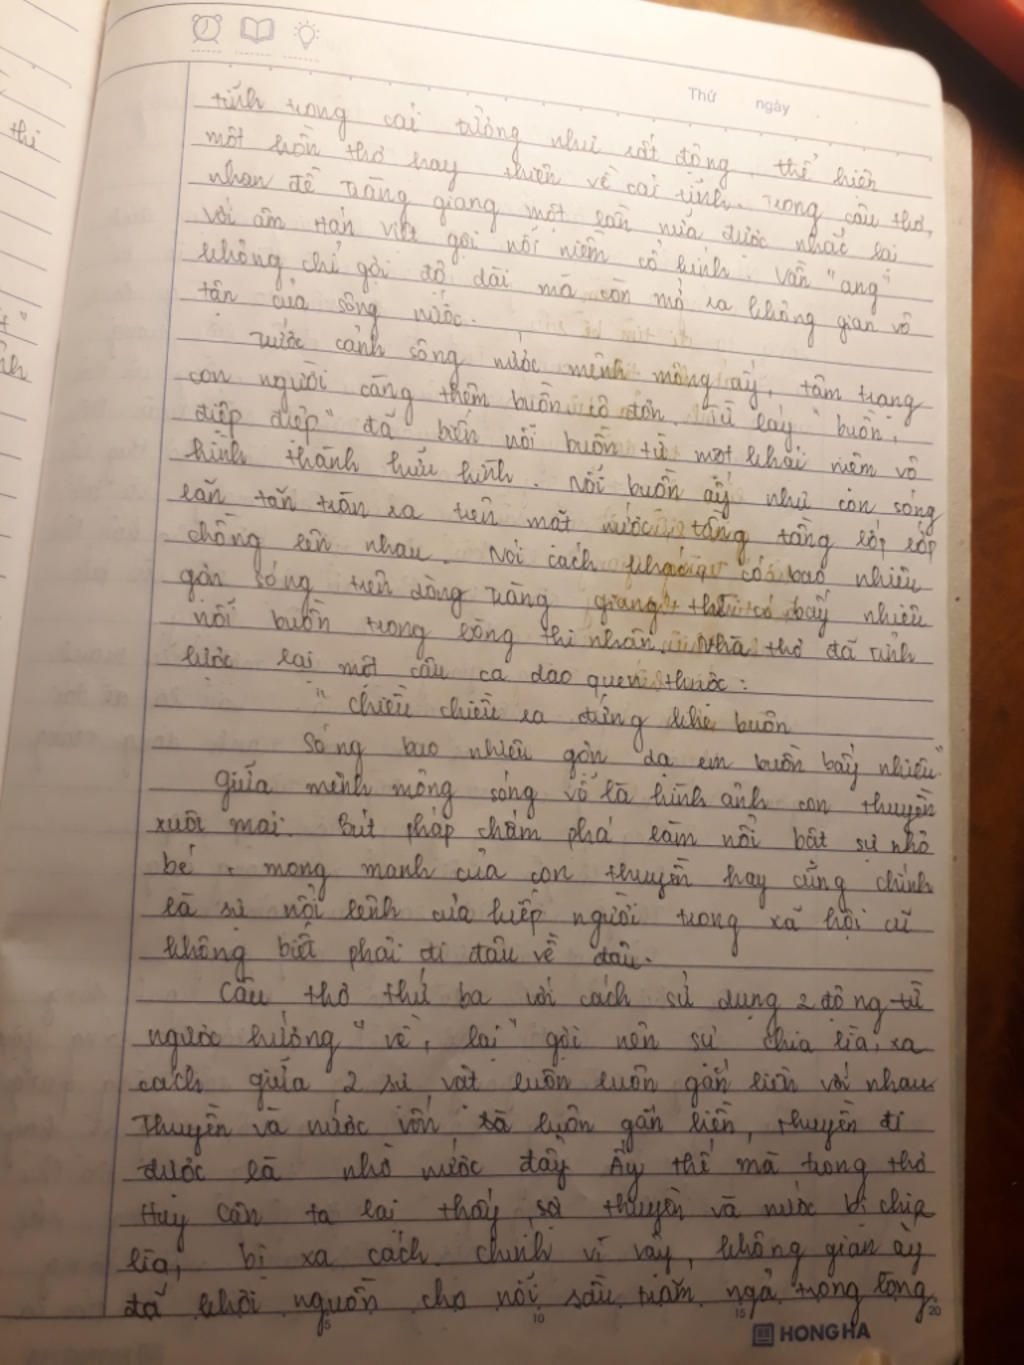 Thứ ngày
tĩnh trong cái tưởng như rất động, thể hiện
một hồn thơ hay thiên về cái tĩnh. Trong câu thơ,
nhan đề Tràng giang một lần nữa được nhắc lại
với âm Hán Việt gợi nỗi niềm cổ kính. Vần "ang"
không chỉ gợi độ dài mà còn mở ra không gian vô
tận của sông nước.
Trước cảnh sông nước mênh mông ấy, tâm trạng
con người càng thêm buồn, cô đơn. Từ láy "buồn,
điệp điệp" đã biến nỗi buồn từ một khái niệm vô
hình thành hữu hình. Nỗi buồn ấy như con sóng
lăn tăn tràn ra trên mặt nước, tầng tầng lớp lớp
chồng lên nhau. Nói cách khác, có bao nhiêu
gợn sóng trên dòng Tràng giang thì có bấy nhiêu
nỗi buồn trong lòng thi nhân. Nhà thơ đã
lược lại một câu ca dao quen thuộc:
"Chiều chiều ra đứng khe buồn
Sóng bao nhiêu gợn dạ em buồn bấy nhiêu"
Giữa mênh mông sóng vỗ là hình ảnh con thuyền
xuôi mái. Bút pháp chấm phá làm nổi bật sự nhỏ
bé, mong manh của con thuyền hay cũng chính
là sự nổi lênh của kiếp người trong xã hội cũ
không biết phải đi đâu về đâu.
Câu thơ thứ ba với cách sử dụng 2 động từ
ngược hướng "về, lại" gợi nên sự chia lìa, xa
cách giữa 2 sự vật luôn luôn gắn liền với nhau.
Thuyền và nước vốn đã luôn gắn liền, thuyền đi
được là nhờ nước đẩy. Ấy thế mà trong thơ
Huy Cận ta lại thấy sợ thuyền và nước bị chia
lìa, bị xa cách. Chính vì vậy, không gian ấy
đã khơi nguồn cho nỗi sầu trăm ngả trong lòng
5 10 15 20
HONG HA
thi